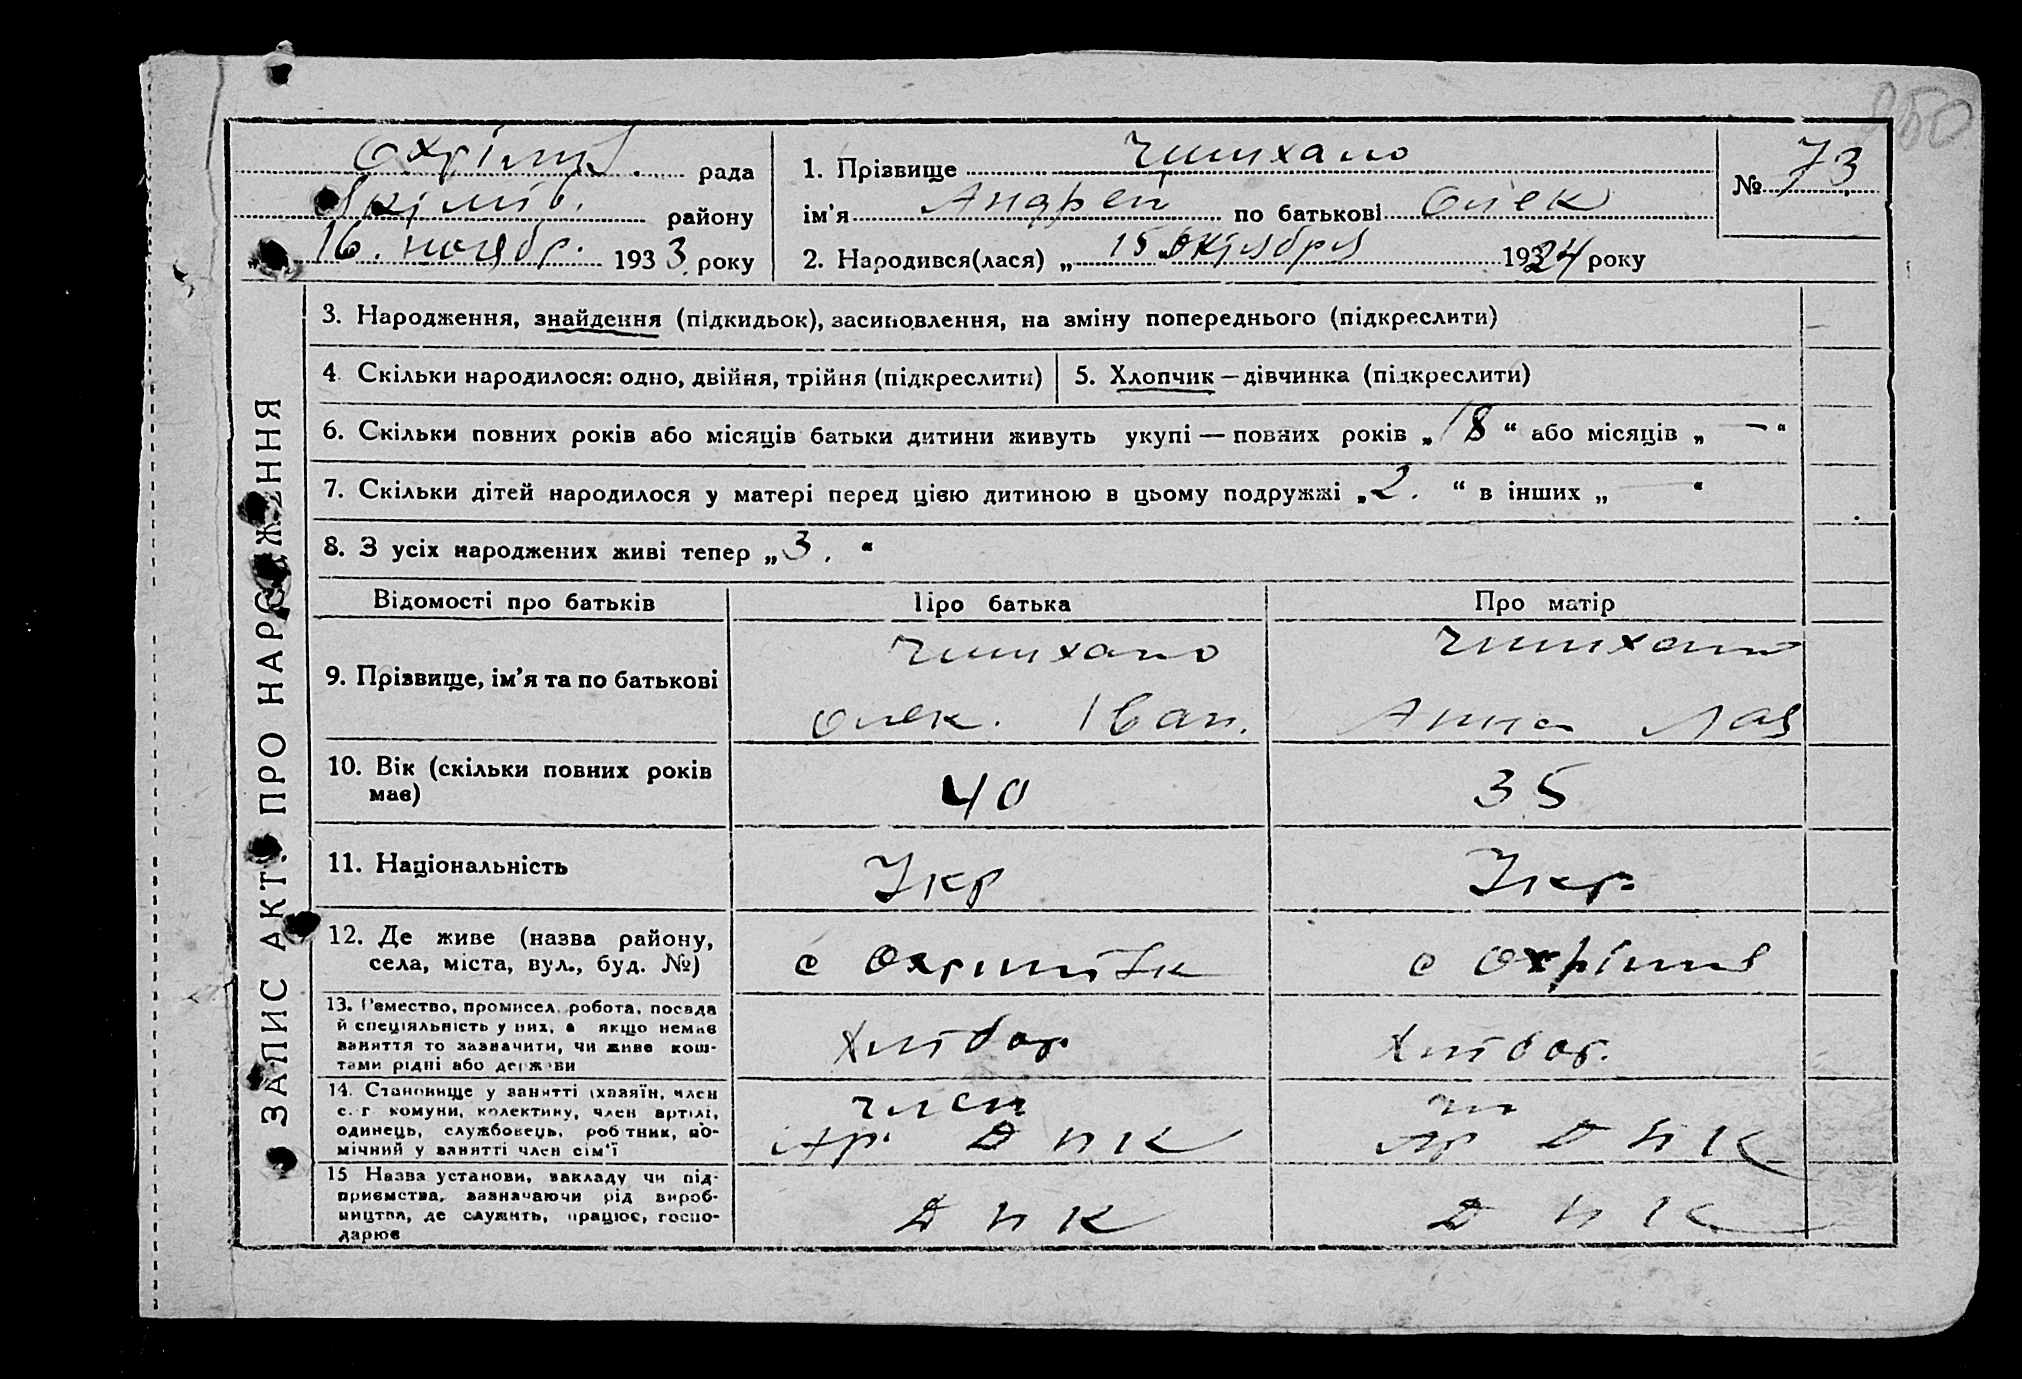 850
рада
Якімів. району
16. ноябр. 1933 року
1. Прізвище
№ 73
ім'я Андрей по батькові Олек
2. Народився(лася) „ 15 октября 1924 року
ЗАПИС АКТУ ПРО НАРОДЖЕННЯ
3. Народження, знайдення (підкидьок), засиновлення, на зміну попереднього (підкреслити)
4. Скільки народилося: одно, двійня, трійня (підкреслити)
5. Хлопчик — дівчинка (підкреслити)
6. Скільки повних років або місяців батьки дитини живуть укупі — повних років „ 18 “ або місяців „ — “
7. Скільки дітей народилося у матері перед цією дитиною в цьому подружжі „ 2. “ в інших „ — “
8. З усіх народжених живі тепер „ 3. “
Відомості про батьків
Про батька
Про матір
9. Прізвище, ім'я та по батькові
Олек. Іван.
Анна
10. Вік (скільки повних років
має)
40
35
11. Національність
Укр
Укр.
12. Де живе (назва району,
села, міста, вул., буд. №)
с
с
13. Ремество, промисел, робота, посада
й спеціяльність у них, а якщо немає
заняття то зазначити, чи живе кош-
тами рідні або держави
Хлібор
Хлібор.
14. Становище у занятті (хазяїн, член
с.-г комуни, колективу, член артілі,
одинець, службовець, робітник, по-
мічний у занятті член сім'ї
член
Ар. ДНК
чл
Ар ДНК
15 Назва установи, закладу чи під-
приємства, зазначаючи рід вироб-
ництва, де служить, працює, госпо-
дарює
ДНК
ДНК